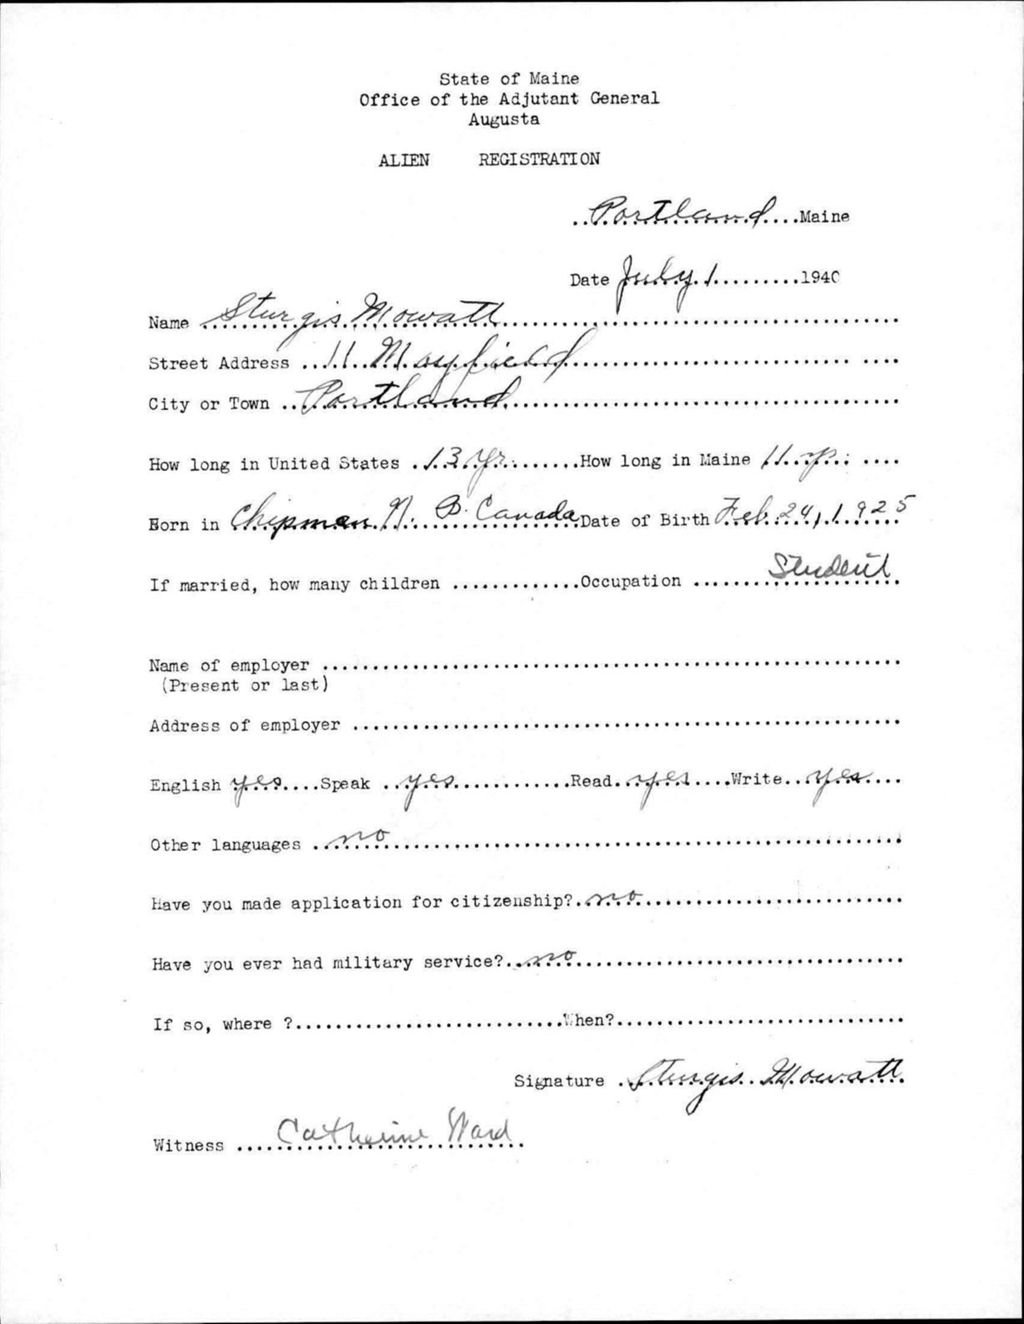 State of Maine
Office of the Adjutant General
Augusta
ALIEN REGISTRATION
Portland Maine
Date July 1 1940
Name Sturgis Mowatt
Street Address 11 Mayfield
City or Town Portland
How long in United States 13 yr. How long in Maine 11 yr.
Born in Chipman N. B. Canada Date of Birth Feb. 24, 1925
If married, how many children Occupation Student
Name of employer
(Present or last)
Address of employer
English yes Speak yes Read yes Write yes
Other languages no
Have you made application for citizenship? no
Have you ever had military service? no
If so, where ? When?
Signature Sturgis Mowatt
Witness Catherine Ward